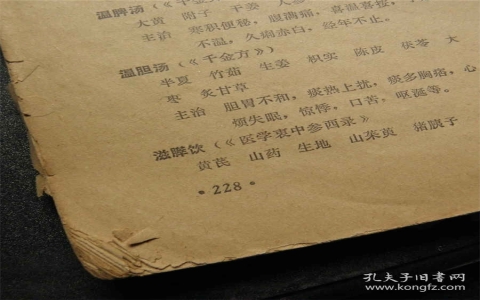 温脾汤（《千金方》
大黄 附子 干姜 人参
主治 寒积便秘，腹满痛，喜温喜按，手
不温，久痢赤白，经年不止。
温胆汤（《千金方》）
半夏 竹茹 生姜 枳实 陈皮 茯苓 大
枣 炙甘草
主治 胆胃不和，痰热上扰，痰多胸痞，心
烦失眠，惊悸，口苦，呕涎等。
滋膵饮（《医学衷中参西录》
黄芪 山药 生地 山茱萸 猪胰子
·228·
孔夫子旧书网
www.kongfz.com